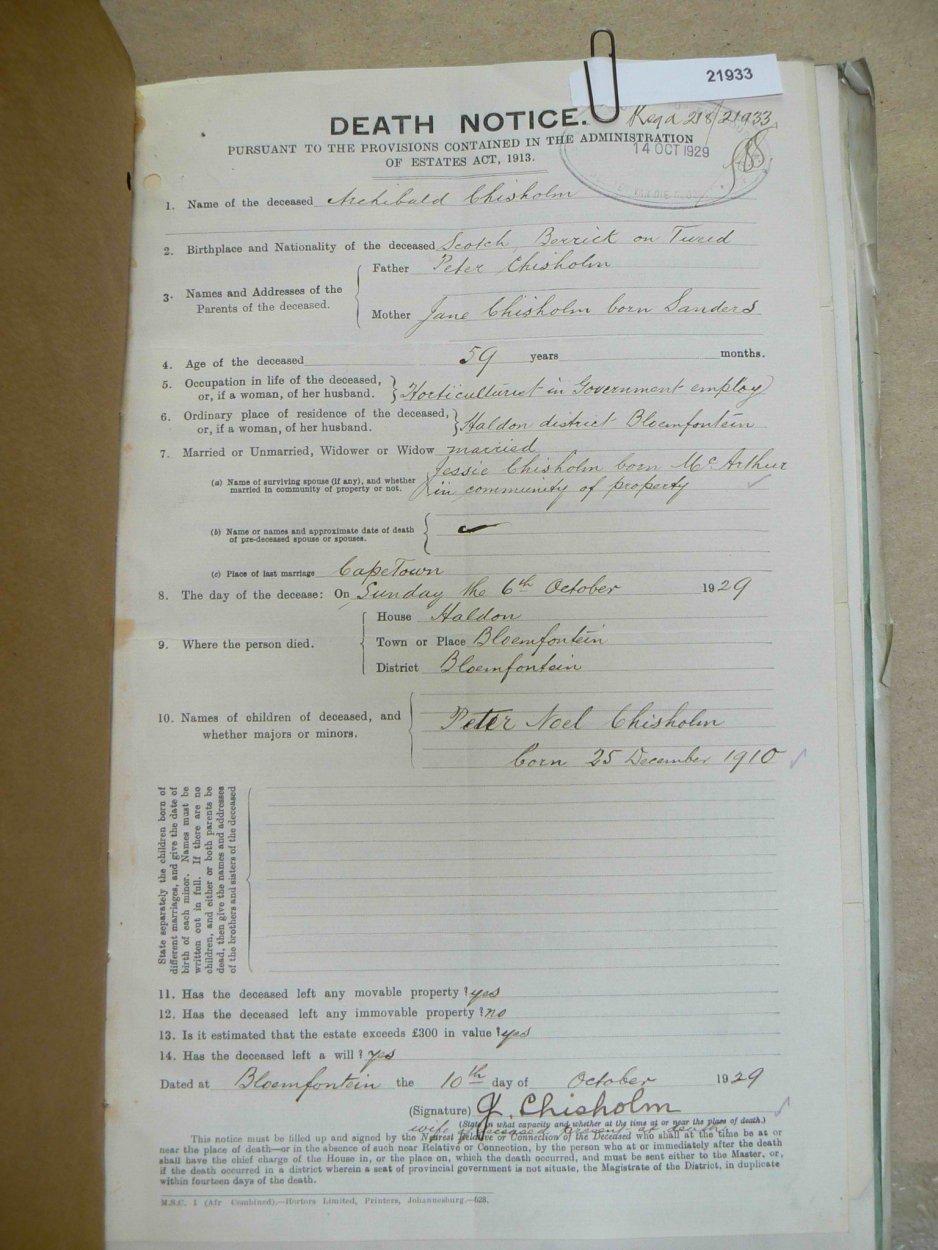 21933
DEATH NOTICE.
Regd 218/21933
PURSUANT TO THE PROVISIONS CONTAINED IN THE ADMINISTRATION
OF ESTATES ACT, 1913.
14 OCT 1929
1. Name of the deceased Archibald Chisholm
2. Birthplace and Nationality of the deceased Scotch, Berrick on Tweed
3. Names and Addresses of the Parents of the deceased.
Father Peter Chisholm
Mother Jane Chisholm born Sanders
4. Age of the deceased 59 years months.
5. Occupation in life of the deceased, or, if a woman, of her husband. Horticulturist in Government employ
6. Ordinary place of residence of the deceased, or, if a woman, of her husband. Haldon district Bloemfontein
7. Married or Unmarried, Widower or Widow married
(a) Name of surviving spouse (if any), and whether married in community of property or not. Jessie Chisholm born McArthur
in community of property
(b) Name or names and approximate date of death of pre-deceased spouse or spouses.
(c) Place of last marriage CapeTown
8. The day of the decease: On Sunday the 6th October 1929
9. Where the person died.
House Haldon
Town or Place Bloemfontein
District Bloemfontein
10. Names of children of deceased, and whether majors or minors.
Peter Noel Chisholm
born 25 December 1910
State separately the children born of
different marriages, and give the date of
birth of each minor. Names must be
written out in full. If there are no
children, and either or both parents be
dead, then give the names and addresses
of the brothers and sisters of the deceased
11. Has the deceased left any movable property? yes
12. Has the deceased left any immovable property? no
13. Is it estimated that the estate exceeds £300 in value? yes
14. Has the deceased left a will? yes
Dated at Bloemfontein the 10th day of October 1929
(Signature) J. Chisholm
(State in what capacity and whether at the time at or near the place of death.)
wife of deceased present at death
This notice must be filled up and signed by the Nearest Relative or Connection of the Deceased who shall at the time be at or
near the place of death—or in the absence of such near Relative or Connection, by the person who at or immediately after the death
shall have the chief charge of the House in, or the place on, which the death occurred, and must be sent either to the Master, or,
if the death occurred in a district wherein a seat of provincial government is not situate, the Magistrate of the District, in duplicate
within fourteen days of the death.
M.S.C. 1 (Afr Combined).—Hortors Limited, Printers, Johannesburg.—628.